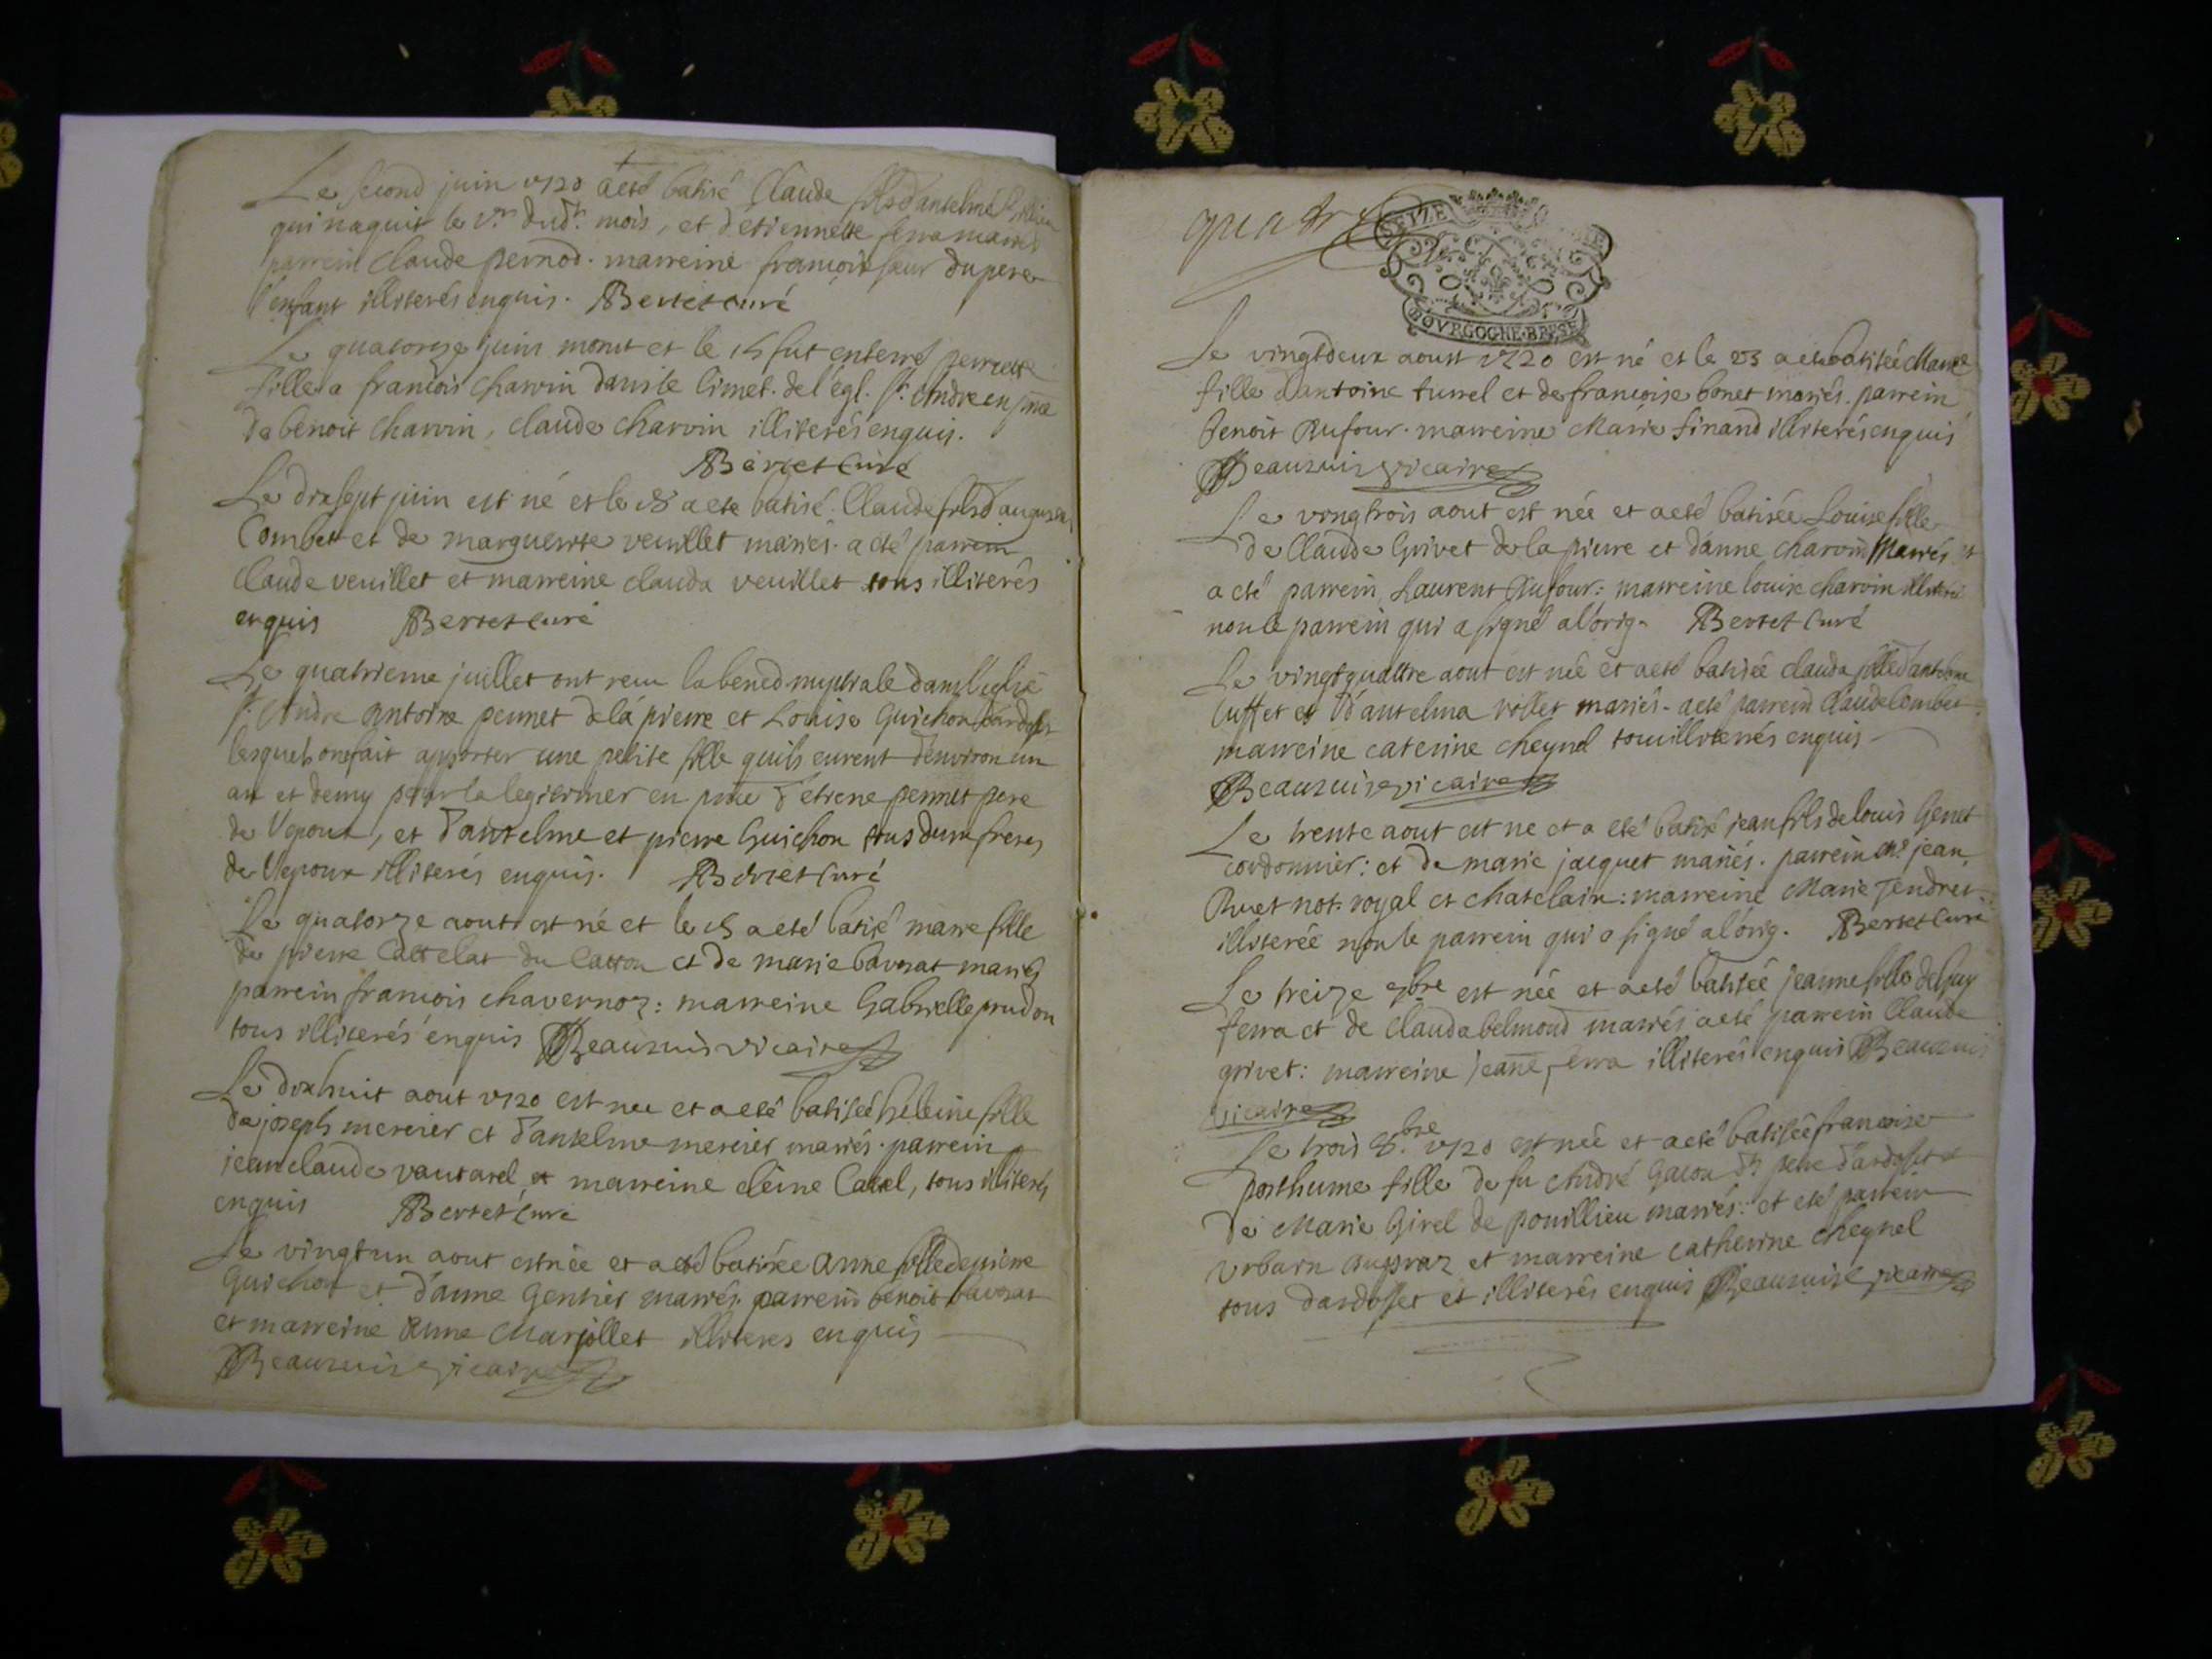 Le second juin 1720 a esté batisé Claude fils d'anselme
qui naquit le dud. mois, et d'etiennette ferra mariés
parrein Claude pernod. marreine françoise sœur du pere
l'enfant illiterés enquis. Bertet curé
Le quatorze juin mourut et le 15 fut enterré perrette
fille a françois Charvin dans le cimet. de l'égl. St. Andre en pnce
de benoit Charvin, claude Charvin illiterés enquis.
Bertet Curé
Le dix sept juin est né et le 18 a esté batisé Claude fils d'augustin
Combet et de marguerite veuillet mariés. a eté parrein
Claude veuillet et marreine clauda veuillet tous illiterés
enquis Bertet curé
Le quatrieme juillet ont receu la bened nuptiale dans l'eglise
St. Andre antoine pennet de la pierre et Louise Guichon d'ardosset
lesquels ont fait apporter une petite fille quils eurent d'environ un
an et demy pour la legitimer en pnce d'etiene pennet pere
de l'epoux, et d'anselme et pierre Guichon tous deux freres
de l'epoux illiterés enquis. Bertet curé
Le quatorze aout est né et le 15 a eté batisé marie fille
de pierre Cattelat du Catton et de marie bavosat mariés
parrein francois chavernoz: marreine Gabrielle prudon
tous illiterés enquis Beauzuis vicaire
Le dix huit aout 1720 est nee et a eté batisée heleine fille
de joseph mercier et d'anselme mercier mariés. parrein
jean claude vautarel et marreine eleine Catel, tous illiterés
enquis Bertet curé
Le vingt un aout est née et a eté batisée Anne fille de pierre
Guichon et d'anne Gentier mariés. parrein benoit bavosat
et marreine Anne Marjollet illiteres enquis
Beauzuis vicaire
quatre
SEIZE
BOURGOGNE·BRESSE
Le vingtdeux aoust 1720 est né et le 23 a eté batisée Marie
fille d'antoine turrel et de francoise bonet mariés. parrein
benoit Dufour. marreine Marie finand illiterés enquis
Beauzuis vicaire
Le vingtrois aout est née et a eté batisée Louise fille
de Claude Grivet de la pierre et d'anne charvin Mariés et
a eté parrein Laurent Dufour: marreine louise charvin illiterés
non le parrein qui a signé a l'orig. Bertet Curé
Le vingtquattre aout est née et a eté batisée clauda fille d'antoine
Cuffet et d'anselma vollet mariés. a eté parrein Claude Combet
marreine caterine cheynel tous illiterés enquis
Beauzuis vicaire
Le trente aout est ne et a eté batisé jean fils de louis Genet
cordonnier: et de marie jacquet mariés. parrein Me jean
Ruet not. royal et chatelain: marreine Marie Jendret
illiterée non le parrein qui a signé a l'orig. Bertet Curé
Le treize 7bre est née et a eté batisée jeanne fille de Guy
ferra et de Clauda belmond mariés a eté parrein Claude
grivet: marreine Jeanne ferra illiterés enquis Beauzuis
vicaire
Le trois 8.bre 1720 est née et a eté batisée francoise
posthume fille de fu André Gacon dt. pere d'ardosset et
de Marie Girel de pouillieu mariés: et eté parrein
urbain et marreine catherine cheynel
tous dardosset et illiterés enquis Beauzuis vicaire